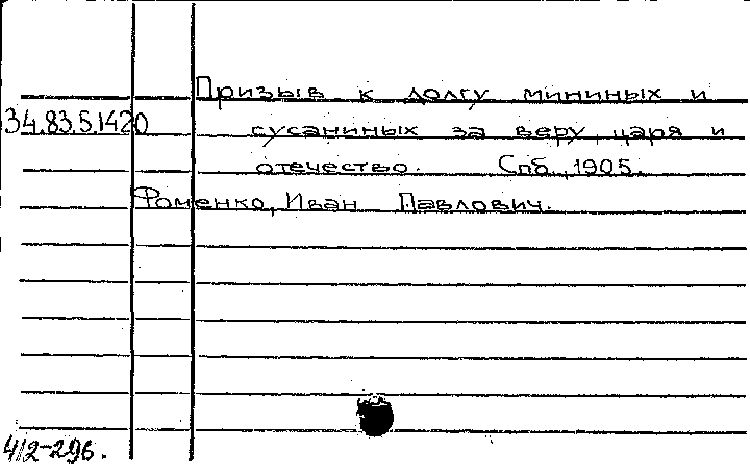 Призыв к долгу мининых и
34.83.5.1420 сусаниных за веру, царя и
отечество. Спб., 1905.
Фоменко, Иван Павлович.
412-296.